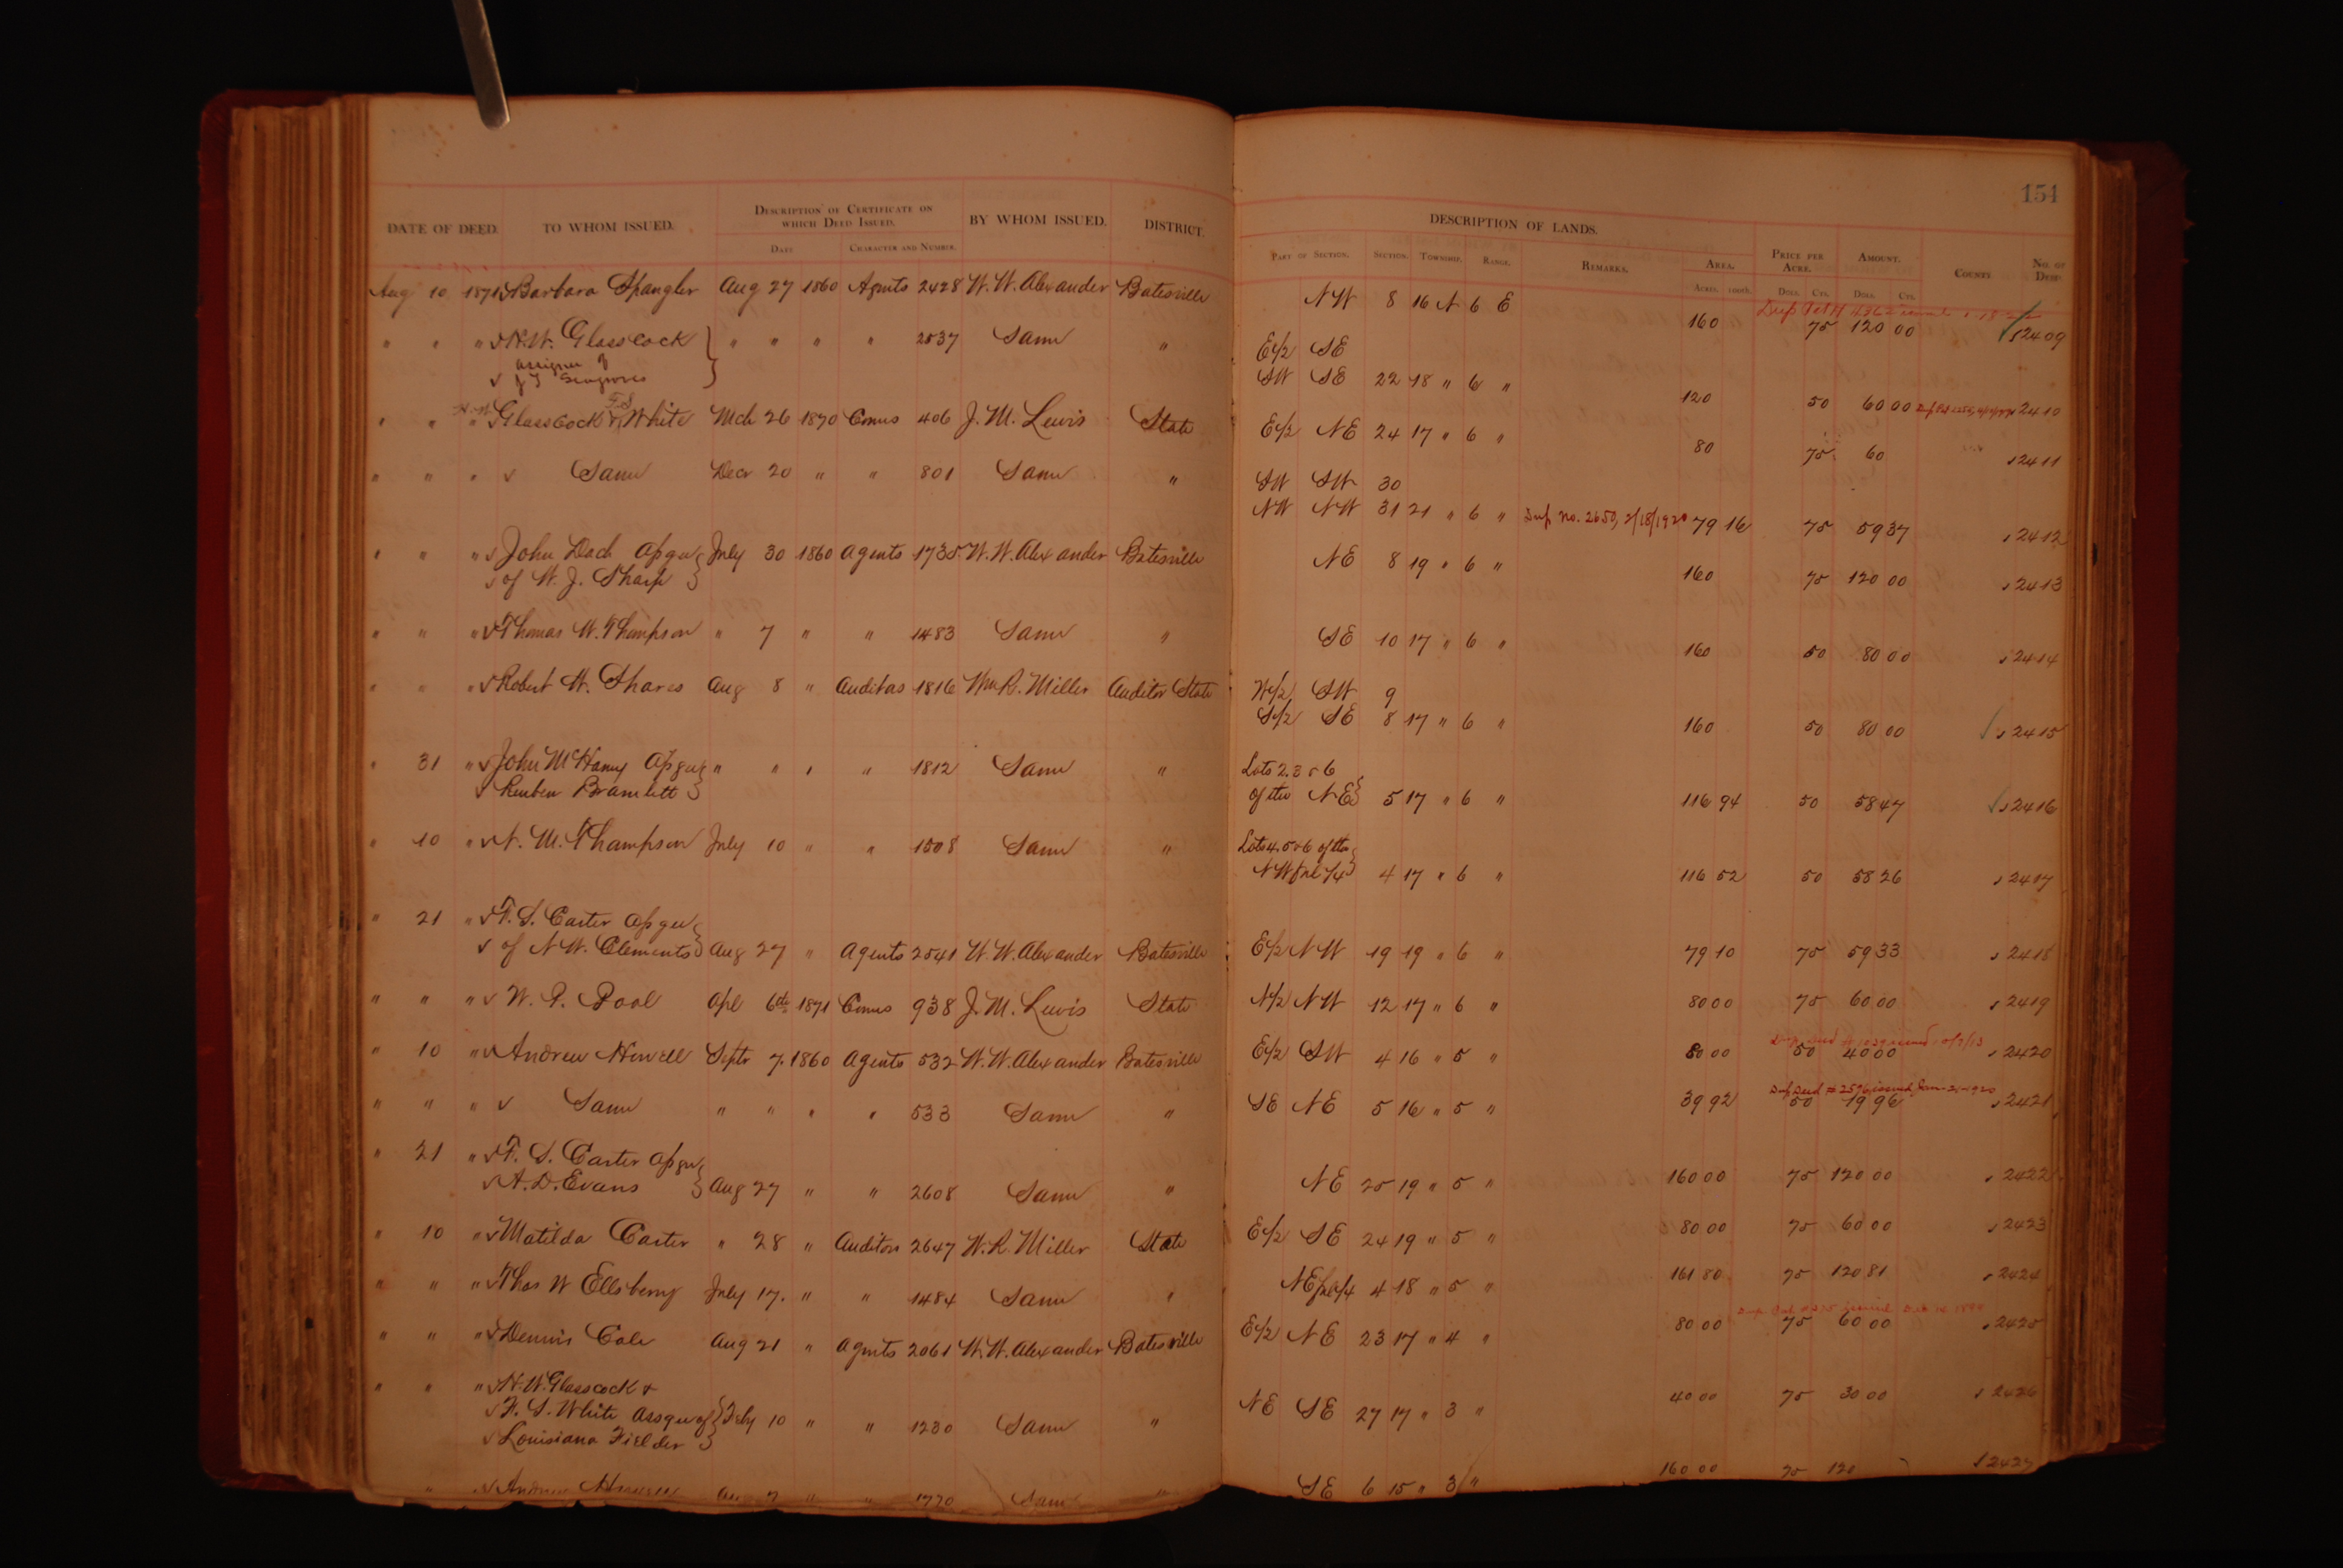 154
DATE OF DEED. TO WHOM ISSUED. DESCRIPTION OF CERTIFICATE ON WHICH DEED ISSUED. BY WHOM ISSUED. DISTRICT. DESCRIPTION OF LANDS. PRICE PER ACRE. AMOUNT. COUNTY NO. OF DEED
DATE CHARACTER AND NUMBER. PART OF SECTION. SECTION. TOWNSHIP. RANGE. REMARKS. AREA.
ACRES. 100TH. DOLS. CTS. DOLS. CTS.
Aug 10 1871 Barbara Spangler Aug 27 1860 Agents 2428 W. W. Alexander Batesville NW 8 16 N 6 E 160 75 120 00 2409
" " " H. W. Glasscock } " " " " 2537 Same " E 1/2 SE
assignee of
J T SW SE 22 18 " 6 " 120 50 60 00 2410
" " " H. W. Glasscock & F. S. White Mch 26 1870 Comrs 406 J. M. Lewis State E 1/2 NE 24 17 " 6 " 80 75 60 2411
" " " Same Decr 20 " " 801 Same " SW SW 30
NW NW 31 21 " 6 " Dup No. 2650, 2/18/1920 79 16 75 59 37 2412
" " " John Dach Assgee July 30 1860 Agents 1735 W. W. Alexander Batesville NE 8 19 " 6 " 160 75 120 00 2413
of W. J. Sharp }
" " " Thomas W. Thompson " 7 " " 1483 Same " SE 10 17 " 6 " 160 50 80 00 2414
" " " Robert W. Shares Aug 8 " Auditors 1816 Wm R. Miller Auditor State W 1/2 SW 9
S 1/2 SE 8 17 " 6 " 160 50 80 00 2415
" 31 " John McHaney Assgee } " " " " 1812 Same " Lots 2.3 & 6
Reuben Bramlett } of the NE } 5 17 " 6 " 116 94 50 58 47 2416
" 10 " N. M. Thompson July 10 " " 1508 Same " Lots 4.5 & 6 of the
NW frl 1/4 } 4 17 " 6 " 116 52 50 58 26 2417
" 21 " F. S. Carter Assgee
of N W. Clements } Aug 27 " Agents 2541 W. W. Alexander Batesville E 1/2 NW 19 19 " 6 " 79 10 75 59 33 2418
" " " W. P. Pool Apl 6th 1871 Comrs 938 J. M. Lewis State N 1/2 NW 12 17 " 6 " 80 00 75 60 00 2419
" 10 " Andrew Howell Septr 7. 1860 Agents 532 W. W. Alexander Batesville E 1/2 SW 4 16 " 5 " 80 00 50 40 00 2420
Dup Deed # 2596 issued Jan. 1920
" " " Same " " " " 533 Same " SE NE 5 16 " 5 " 39 92 50 19 96 2421
" 21 " F. S. Carter Assgee
A. D. Evans } Aug 27 " " 2608 Same " NE 25 19 " 5 " 160 00 75 120 00 2422
" 10 " Matilda Carter " 28 " Auditors 2647 W. R. Miller State E 1/2 SE 24 19 " 5 " 80 00 75 60 00 2423
" " " Thos W Ellsberry July 17. " " 1484 Same " NE frl 1/4 4 18 " 5 " 161 80 75 120 81 2424
" " " Dennis Cole Aug 21 " Agents 2061 W. W. Alexander Batesville E 1/2 NE 23 17 " 4 " 80 00 75 60 00 2425
" " " H. W. Glasscock &
F. S. White Assgee of } July 10 " " 1230 Same " NE SE 27 17 " 3 " 40 00 75 30 00 2426
Louisiana Fielder }
" " Andrew Aug 7 " " 1770 Same " SE 6 15 " 3 " 160 00 75 120 2427